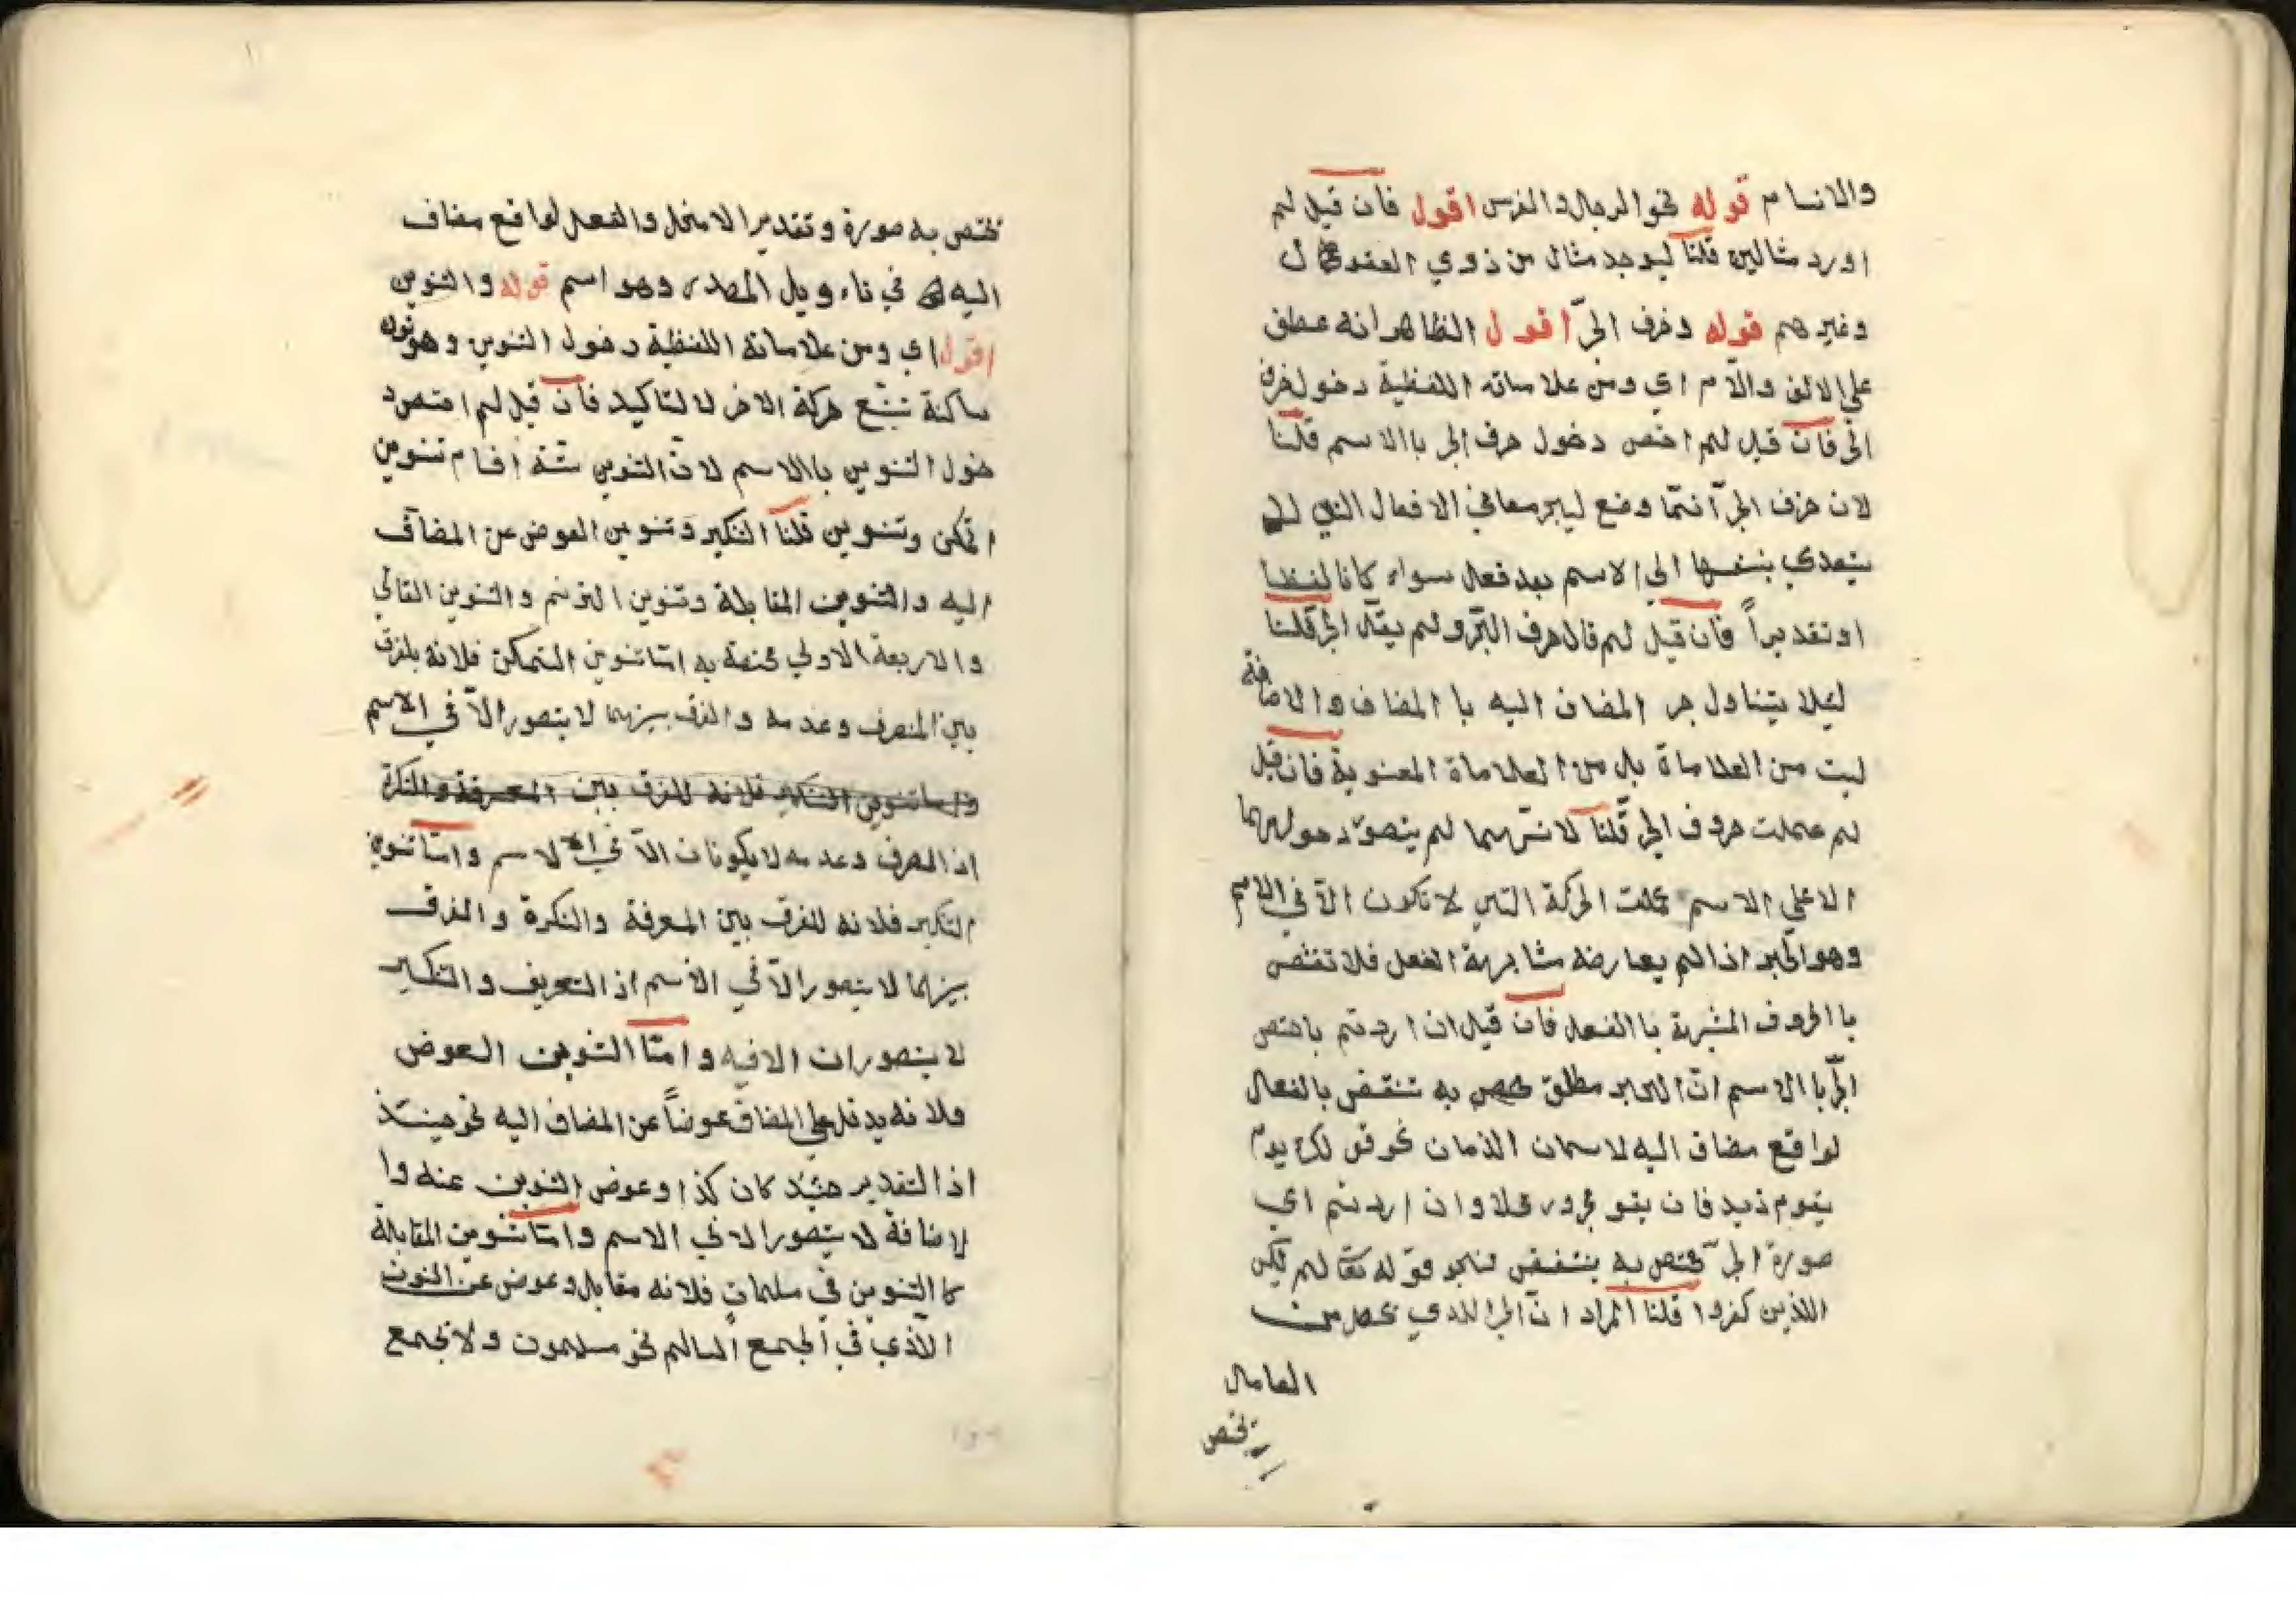 والانسام قوله نحو الرجال والفرس اقول فان قيل لم
اورد مثالين قلنا ليوجد مثال من ذوي العقول
وغيرهم قوله وحرف الجرّ اقول الظاهر انه عطف
على الالف والّام اي ومن علاماته اللفظية دخول حرف
الجر فان قيل لم اختص دخول حرف الجر باالاسم قلنا
لان حرف الجرّ انّما وضع ليجر معاني الافعال التي
يتعدي بنفسها الي الاسم بعد فعل سواء كانا لفظا
او تقديراً فان قيل لم قال حرف الجّر ولم يقال الجر قلنا
لئيلا يتناول جر المضاف اليه با المضاف والاضافة
ليت من العلاماة بل من العلاماة المعنوية فان قيل
لم عملت حروف الجر قلنا لانّهما لم يتصوّر دخولهما
الا علي الاسم عملت الحركة التي لا تكون الّا في الاسم
وهو الجر اذا لم يعارضه مشابهة الفعل فلا تنتقص
با الحروف المشبهة با الفعل فان قيل ان اردتم باختص
الجّر با الاسم انّ الجر مطلق مختص به تنتقض بالفعال
لواقع مضاف اليه لاسمان الذمان نحو يوم
يقوم ذيد فان يقو مجرور محلا وان اردتم اي
صورة الجرّ مختص به ينتقض بنحو قوله تعّا لم يكن
اللذين كفروا قلنا المراد انّ الجر اللدي يحصل من
العامال
يختص
يختص به صورة وتقدير الامحل والفعل لواقع مضاف
اليه في تاءويل المصدر وهو اسم قوله والتنوين
اقول اي ومن علاماته اللفظية دخول التنوين وهو نون
ساكنة تتبع حركة الاخر لا لتاكيد فان قيل لم اختص د
خول التنوين باالاسم لانّ التنوين ستة اقسام تنوين
اتمكن وتنوين قلنا التنكير وتنوين العوض عن المضاف
اليه والتنوين المقابلة وتنوين الترنم والتنوين الغالي
والاربعة الاولي مختصة به امّا تنوين التمكن فلانه يلفرق
بين المنصرف وعدمه والفرق بينهما لا يتصور الّا في الاسم
واما تنوين التنكير فلانه للفرق بين المعرفة والنكرة
اذ الصرف وعدمه لا يكونان الّا في الاسم وامّا تنوين
التنكير فلانه للفرق بين المعرفة والنكرة والفرق
بينهما لا يتصور الّا في الاسم اذ التعريف والتنكير
لا يتصوران الا فيه وامّا التنوين العوض
فلانه يدخل على المضاف عوضاً عن المضاف اليه نحو حينئذ
اذ التقدير حينئذ كان كذا وعوض التنوين عنه وا
لاضافة لا يتصور الا في الاسم وامّا تنوين المقابلة
كا التنوين في مسلمات فلانه مقابل وعوض عن النون
الّذي في الجمع السالم نحو مسلمون ولا تجمع